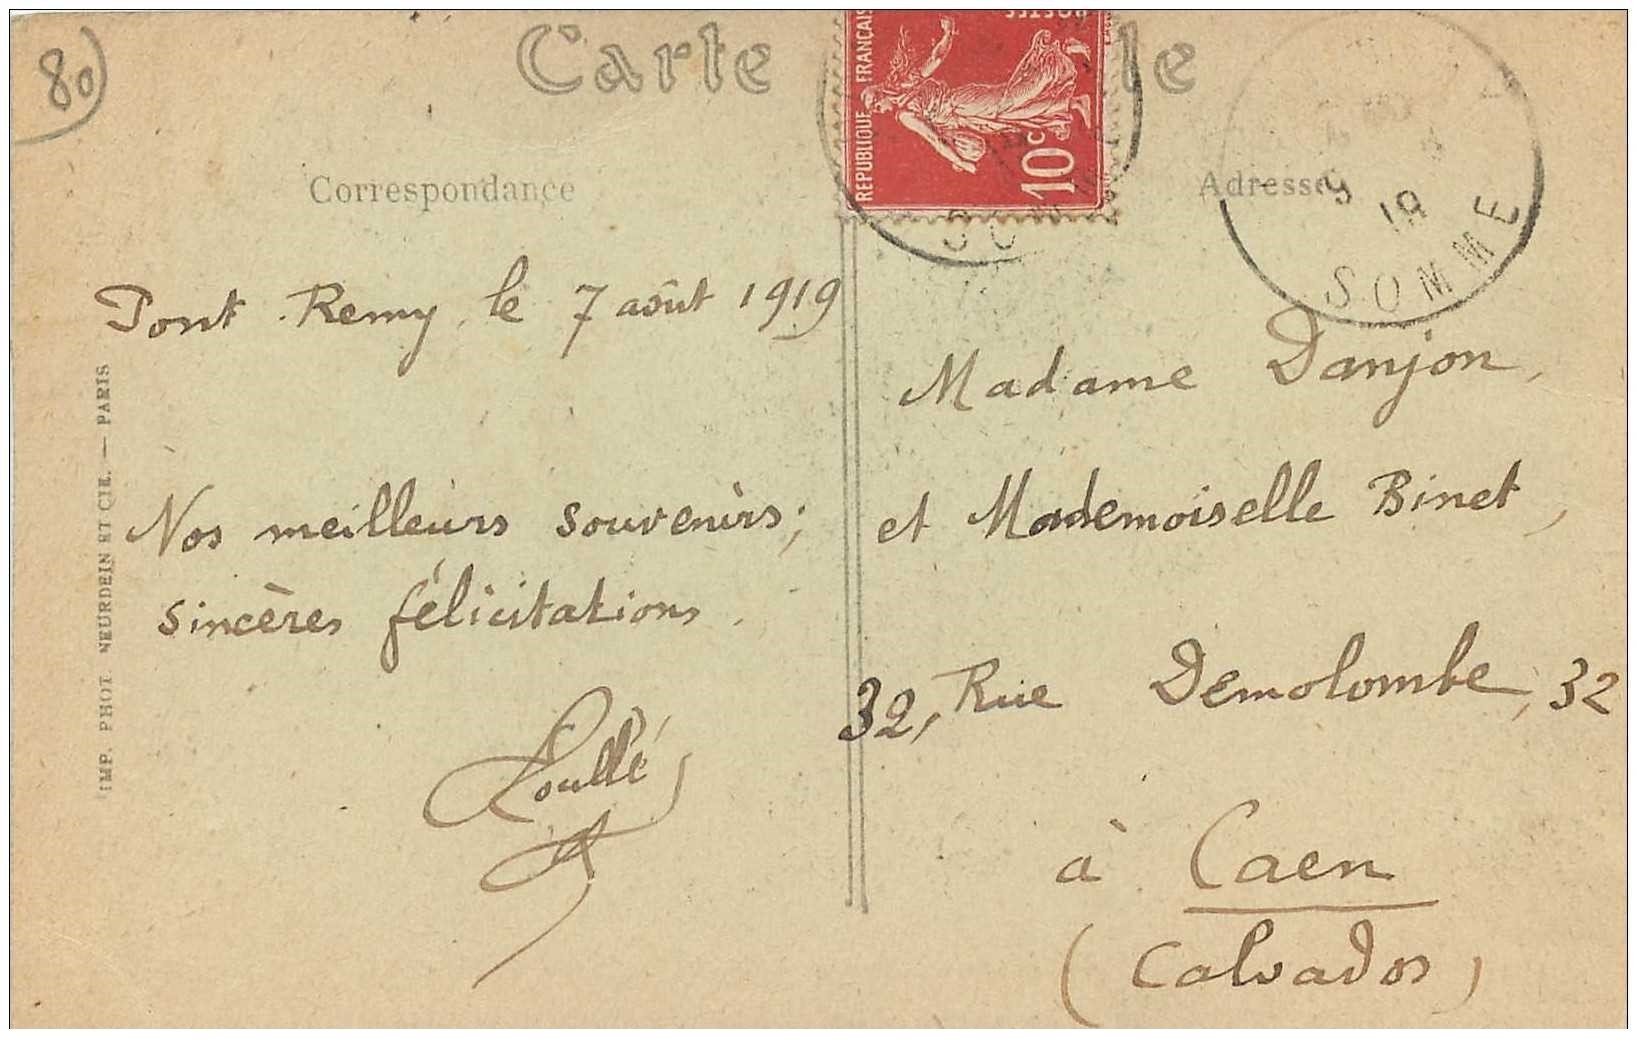 80
Carte
le
REPUBLIQUE FRANÇAISE
POSTES
10c
SOMME
9
19
Correspondance
Adresse
Pont Remy, le 7 août 1919
Nos meilleurs souvenirs;
sincères félicitations.
Madame Danjon,
et Mademoiselle Binet,
32, Rue Demolombe, 32
à Caen
(Calvados)
IMP. PHOT. NEURDEIN ET CIE. — PARIS